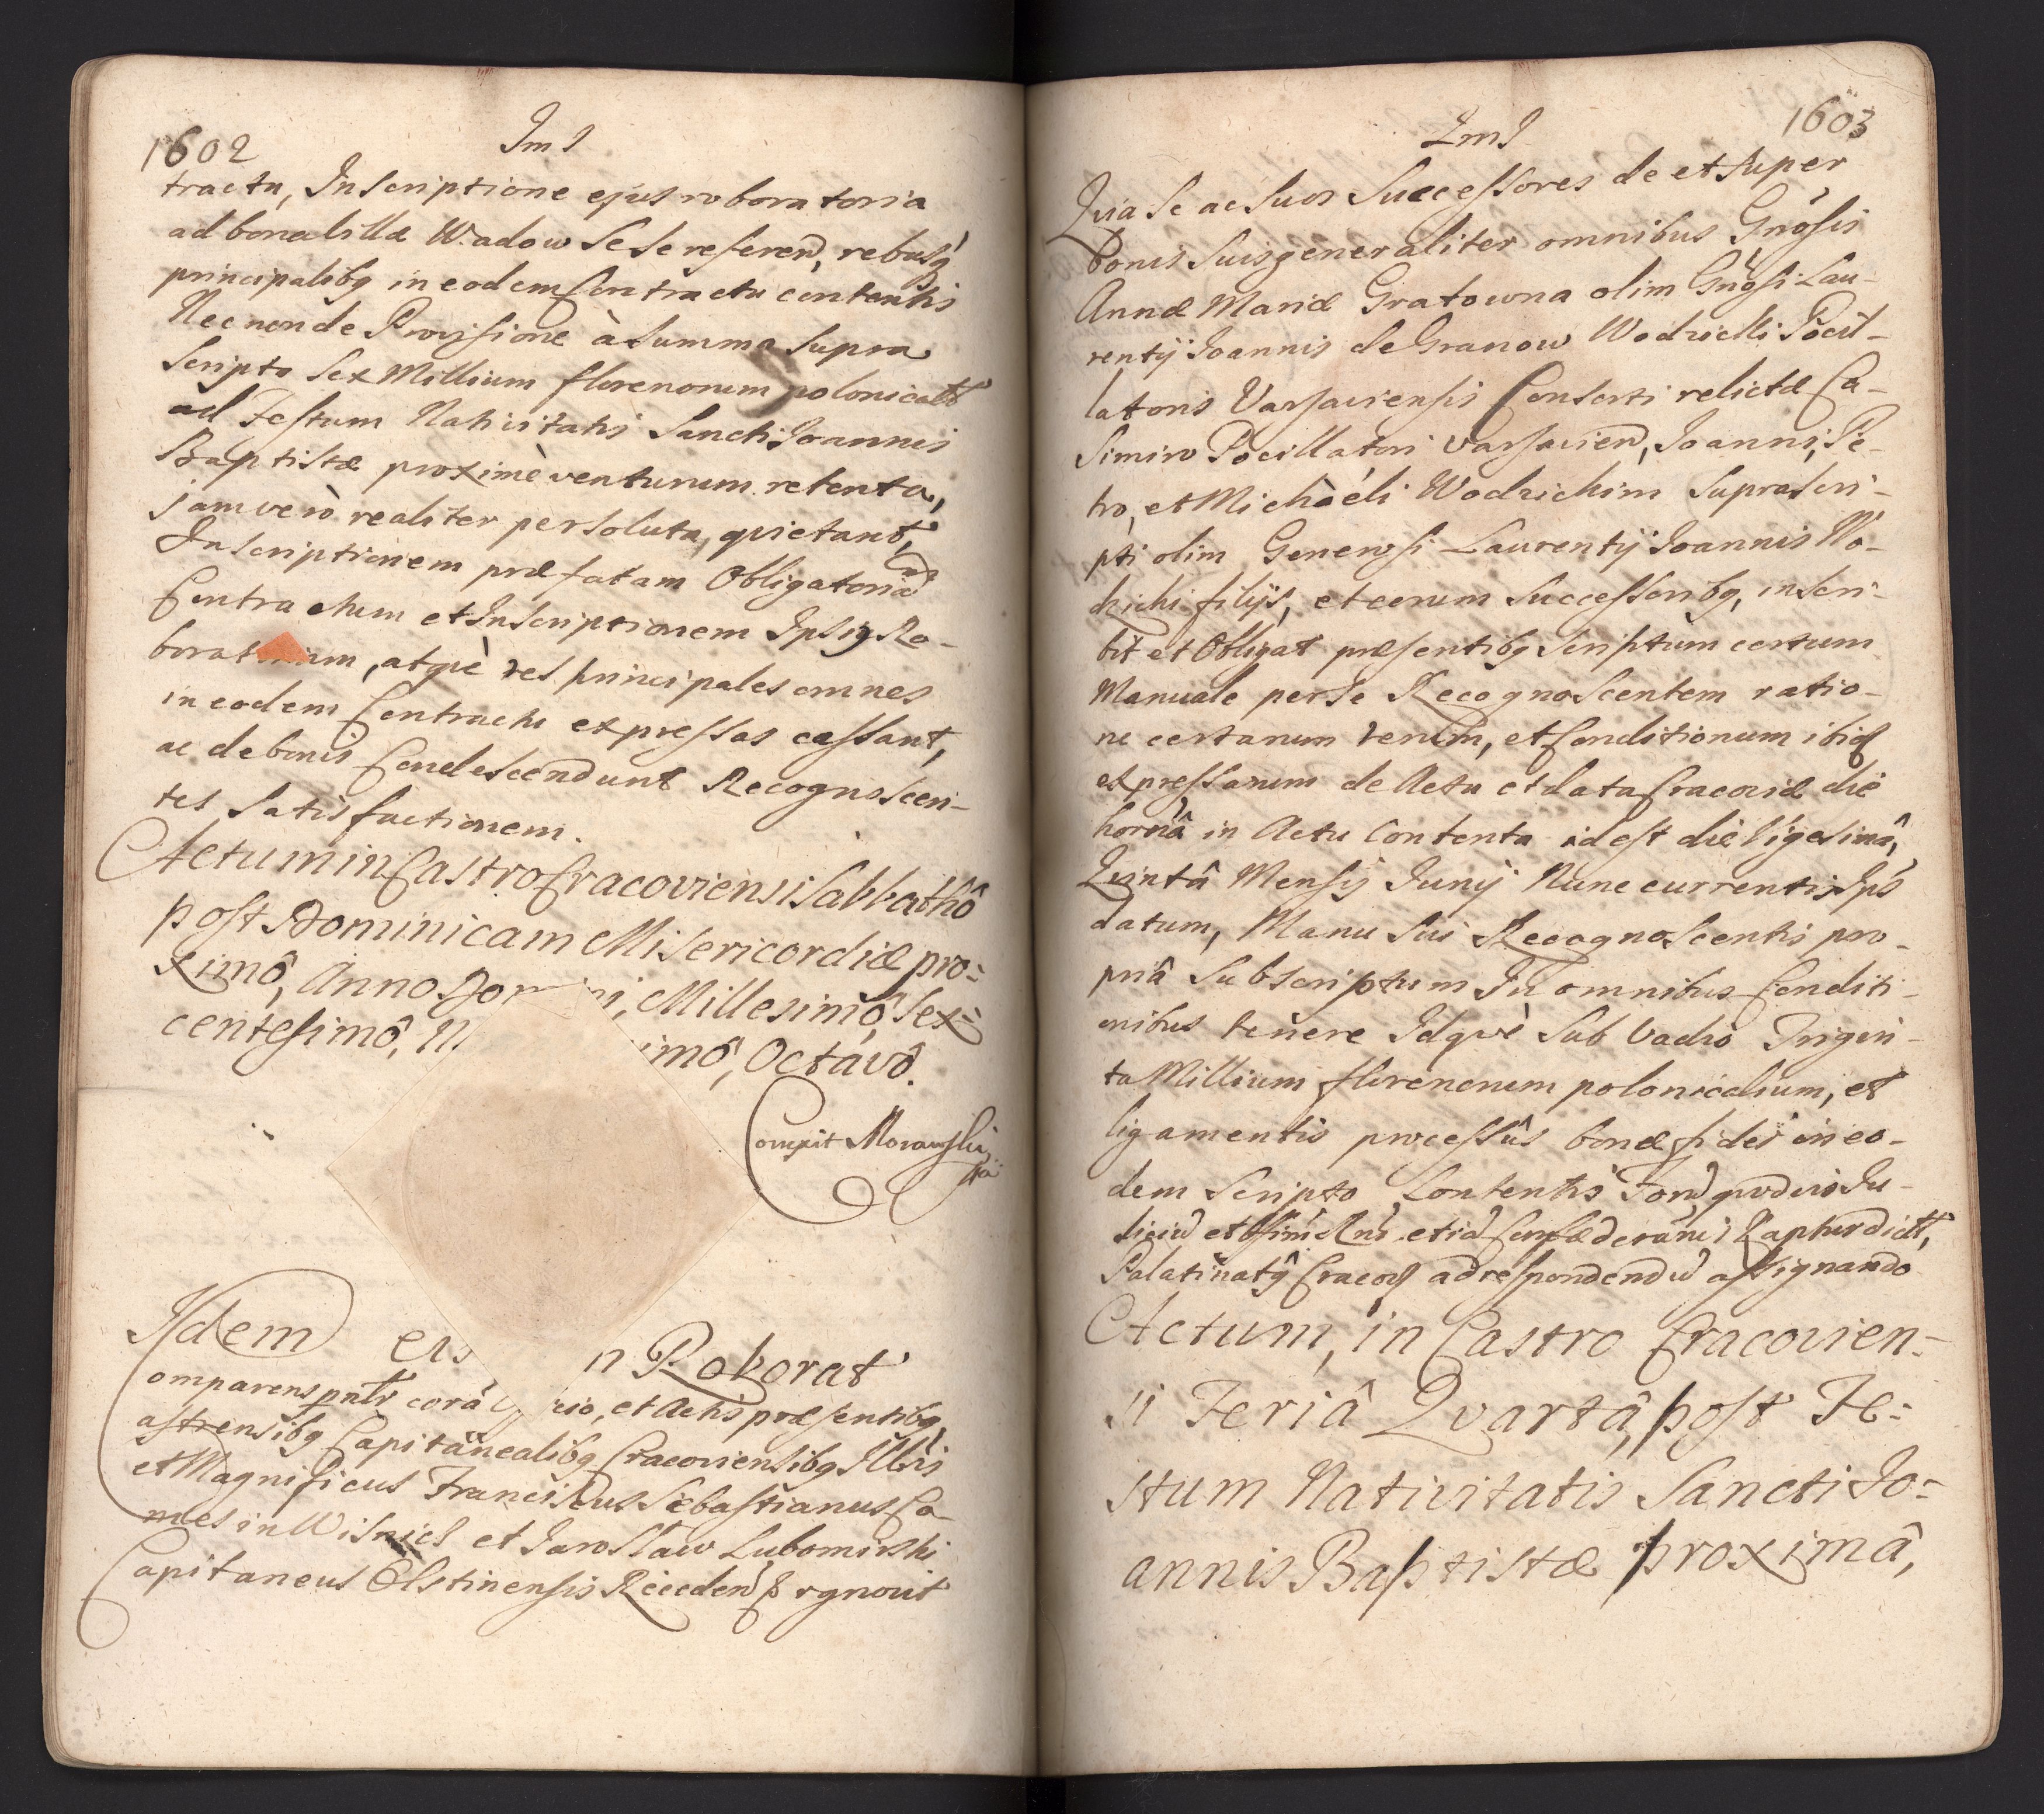 1602
JmJ
tractu, Inscriptione ejus roboratoria
ad bona villæ Wadow Sese referen, rebusq
principalibq in eodem Contractu contentis
Nec non de Provisione à Summa supra
scripta sex Millium florenorum polonicall
ad Festum Nativitatis Sancti Joannis
Baptistæ proximè venturum retenta,
jam verò realiter persoluta, quietant,
Inscriptionem præfatam Obligatoria
Contractum et Inscriptionem Ipsiq Ro-
atquè res principales omnes
in eodem Contractu expressas cassant,
ac de bonis Condescendunt Recognoscen-
tes Satisfactionem.
Actum in Castro Cracoviensi Sabbathô
post Dominicam Misericordiæ pro=
ximô, Anno Millesimô, Sex=
centesimô, imô, Octávô.
Idem Roborat
Comparens pnlr corā io, et Actis præsentibq,
Castrensibq Capitānealibq Cracoviensibq Illris
et Magnificus Franciscus Sebastianus Co-
mes in Wisnicz et Jaroslaw Lubomirski
Capitaneus Olstinensis Rēceden rgnovit
1603
JmJ
Quia Se ac Suos Successores de et super
bonis Suis generaliter omnibus Gnősis
Annæ Mariæ Gratowna olim Gnősi Lau-
rentij Joannis de Granow Wodzicki Pocil-
latoris Varsaviensis Consorti relictæ Ca-
simiro Pocillatori Varsavien, Joanni, Pe-
tro, et Michaéli Wodzickim Suprascri-
pti olim Generosi Laurentij Joannis Wo-
dzicki filijs, et eorum Successoribq, inscri-
bit et Obligat præsentibq Scriptum certum
Manuale per Se Recognoscentem ratio-
ne certarum rerum, et Conditionum ibiq
expressarum de Actu et data Cracoviæ die
hornâ in Actu Contenta id est die Vigesimâ,
Quintâ Mensis Junij Nunc currentis Ips
datum, Manu Sui Recognoscentis pro-
priâ Subscriptum In omnibus Conditi-
onibus tenere Idquè Sub Vadio Trigin-
ta Millium florenorum polonicalium, et
ligamentis processûs bonæ fidei in eo-
dem Scripto Contentis Foro quoduis Ju-
Palatinatq Cracov ad respondendū assignando
Actum, in Castro Cracovien-
si Feriâ Qvartâ, post Fe=
stum Nativitatis Sancti Jo=
annis Baptistæ proximâ,